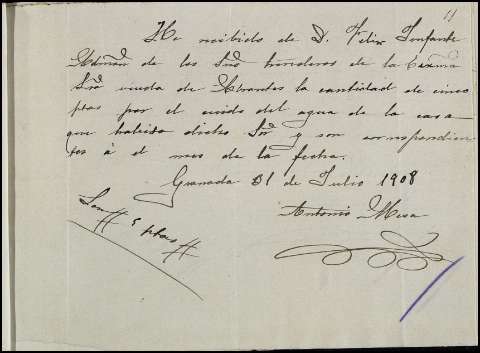 11
He recibido de D. Felix Infante
Admor de los Sres herederos de la Excma
Sra viuda de Abrantes la cantidad de cinco
ptas por el cuido del agua de la casa
que habita dicho Sor y son correspondien-
tes á el mes de la fecha.
Granada 31 de Julio 1908
Son # 5 ptas #
Antonio Mesa